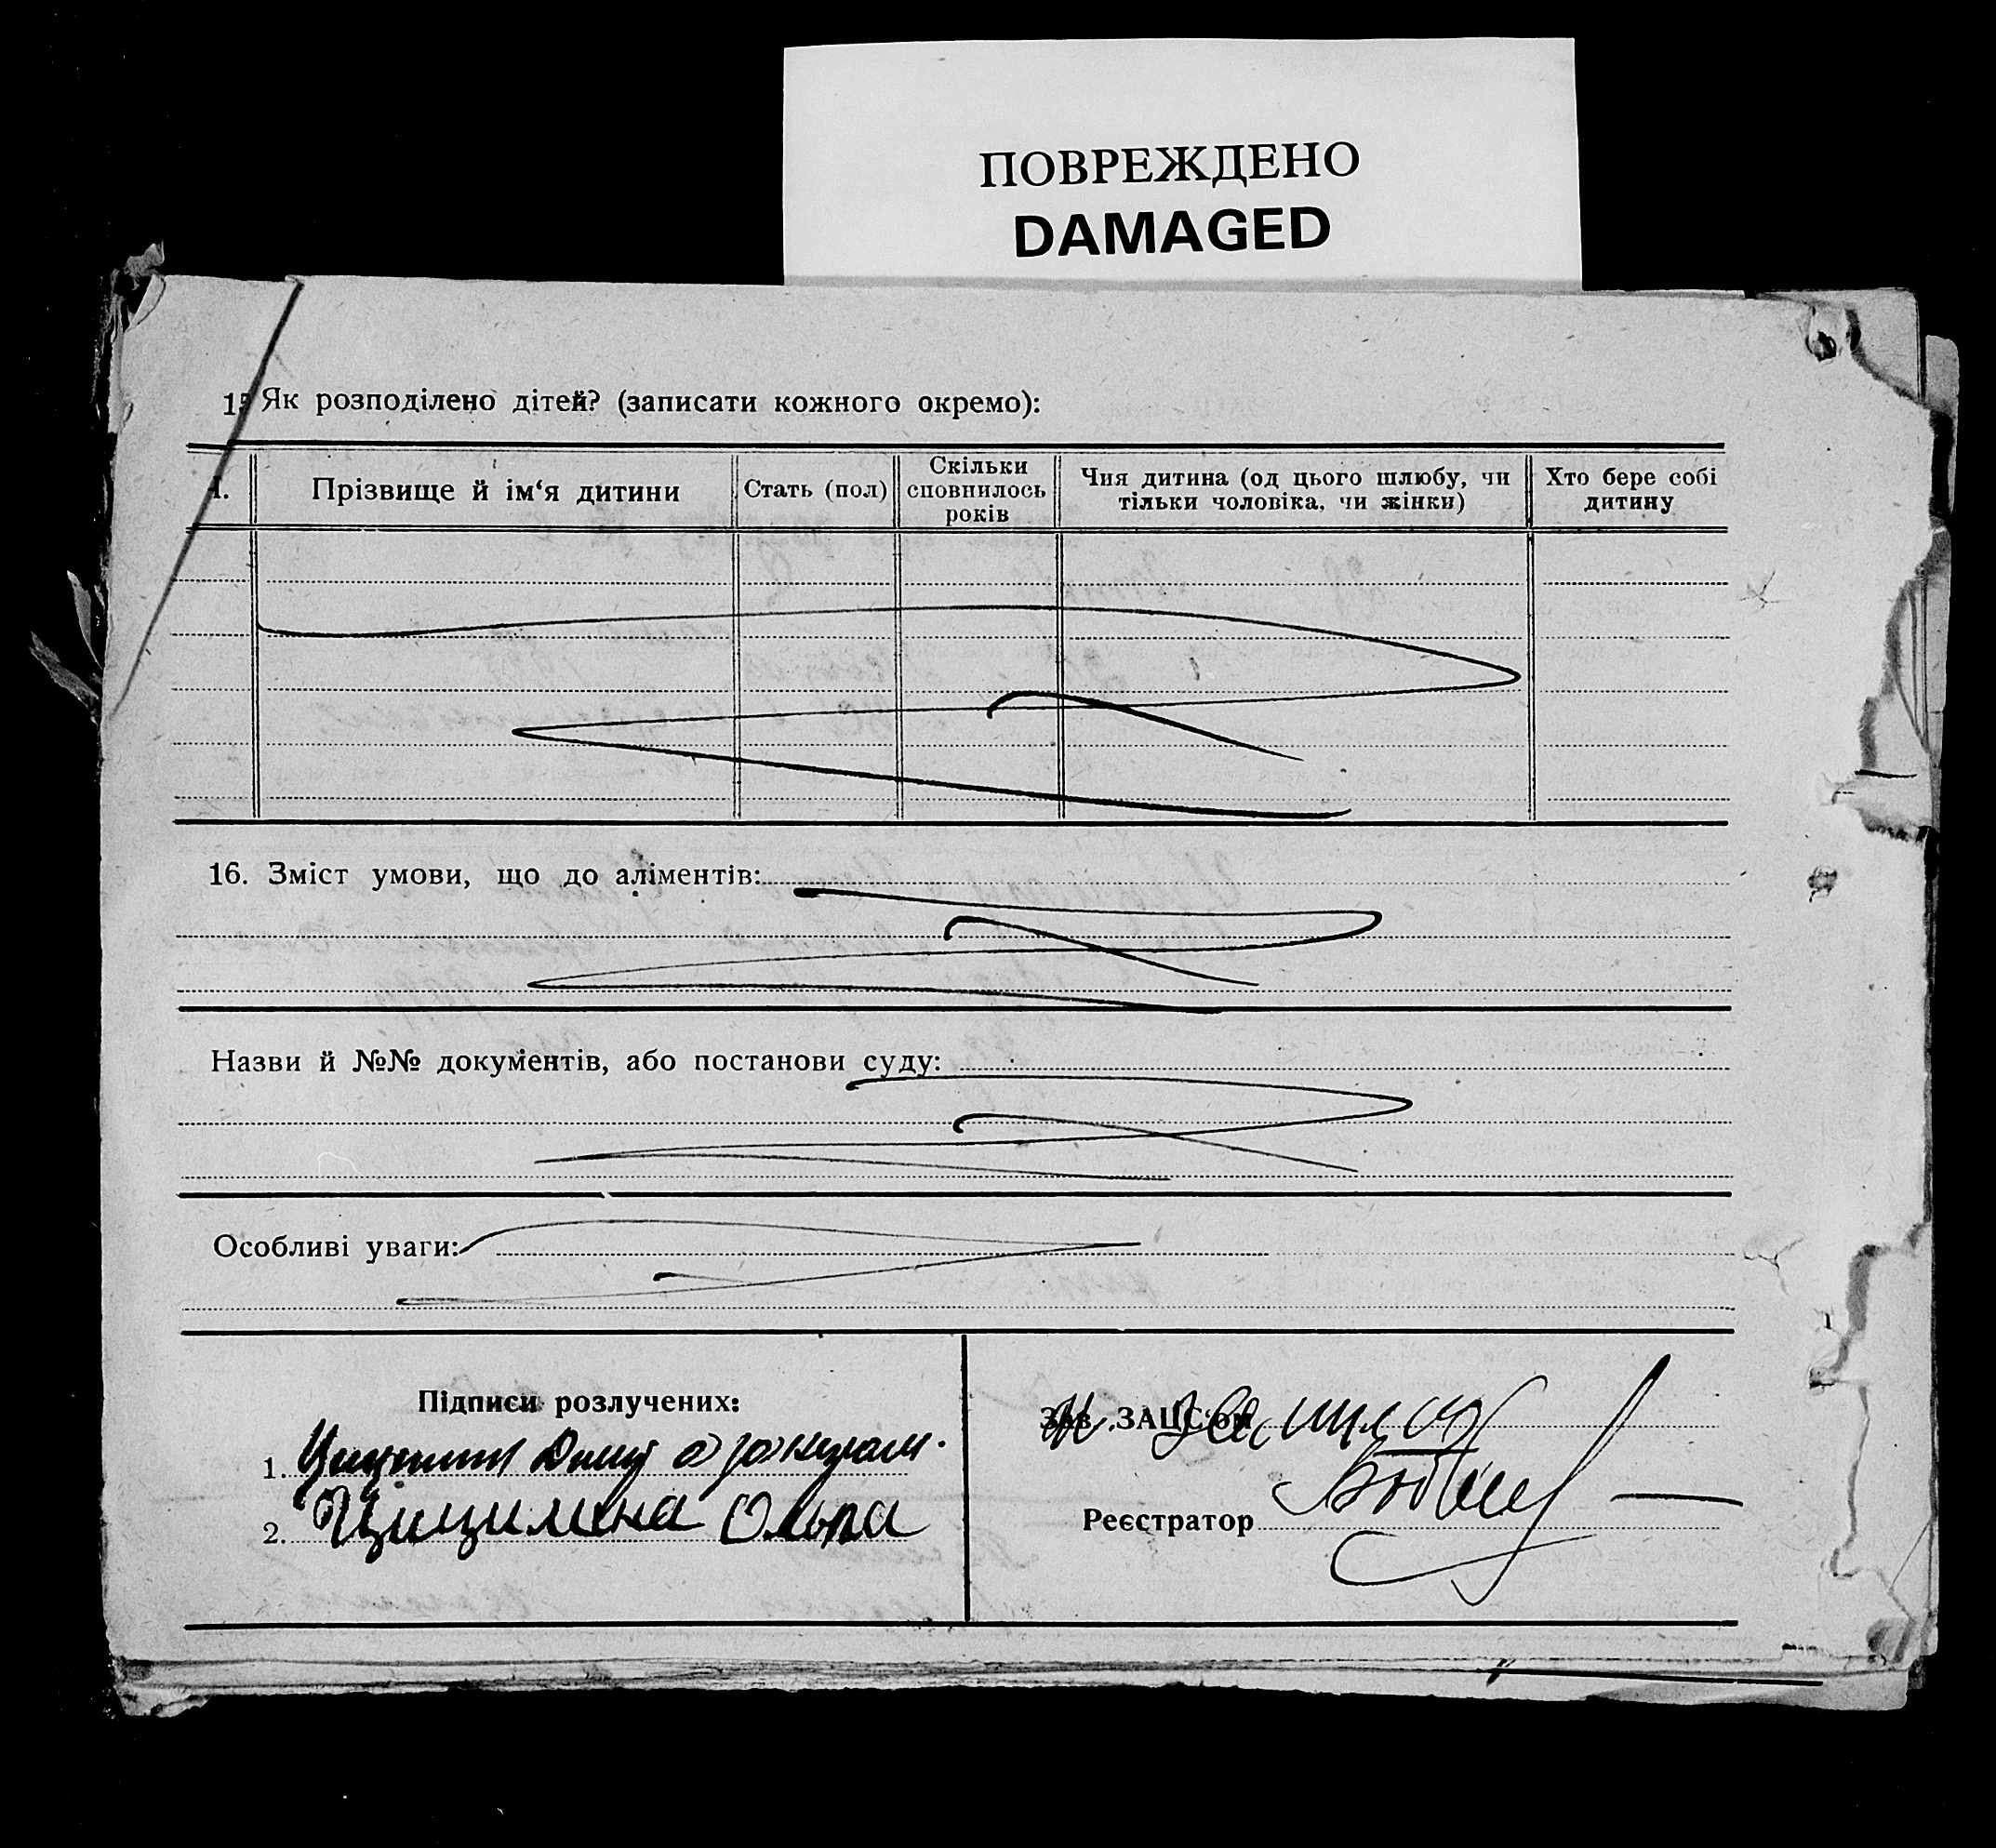 ПОВРЕЖДЕНО
DAMAGED
15 Як розподілено дітей? (записати кожного окремо):
Прізвище й ім‘я дитини
Стать (пол)
Скільки сповнилось років
Чия дитина (од цього шлюбу, чи тільки чоловіка, чи жінки)
Хто бере собі дитину
16. Зміст умови, що до аліментів:
Назви й №№ документів, або постанови суду:
Особливі уваги:
Підписи розлучених:
1.
2. Цицилина Ольга
Зав. ЗАЦС‘ом
Реєстратор